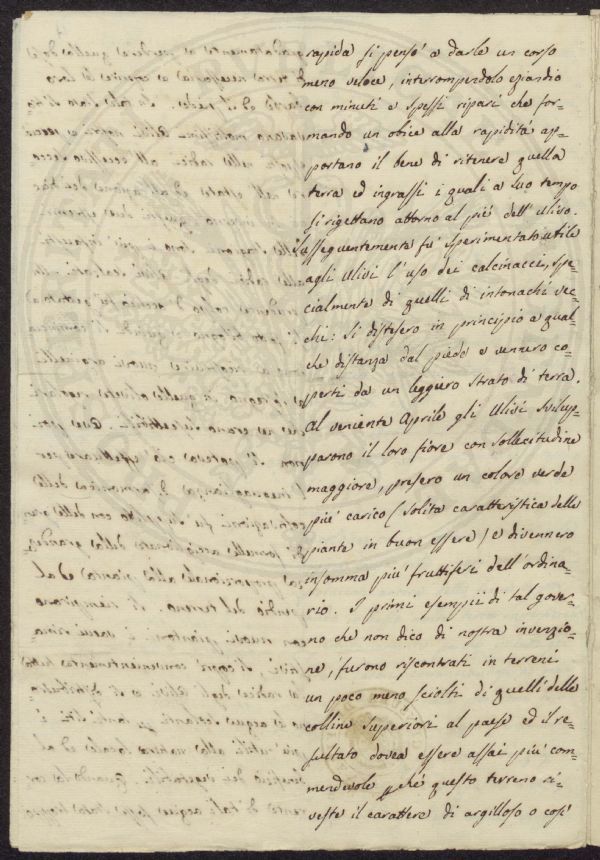 rapida si pensò a darle un corso
meno veloce, interrompendolo eziandio
con minuti e spessi ripari che for-
mando un obice alla rapidità ap-
portano il bene di ritenere quella
terra ed ingrassi i quali a suo tempo
si rigettano attorno al piè dell'ulivo.
Susseguentemente fu sperimentato utile
agli ulivi l'uso dei calcinacci, spe-
cialmente di quelli di intonachi vec-
chi: si distesero in principio a qual-
che distanza dal piede e vennero co-
perti da un leggiero strato di terra.
Al veniente Aprile gli ulivi svilup-
parono il loro fiore con sollecitudine
maggiore, presero un colore verde
più carico (solita caratteristica delle
piante in buon essere) e divennero
insomma più fruttiferi dell'ordina-
rio. I primi esempii di tal gover-
no che non dico di nostra invenzio-
ne, furono riscontrati in terreni
un poco meno sciolti di quelli delle
colline superiori al paese ed il re-
sultato dovea essere assai più com-
mendevole ché questo terreno ri-
veste il carattere di argilloso o così